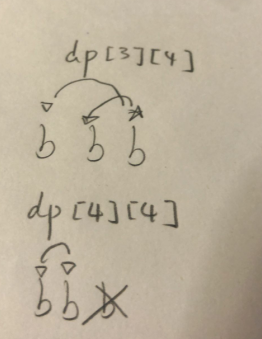 dp[3][4]
b b b
dp[4][4]
b b b